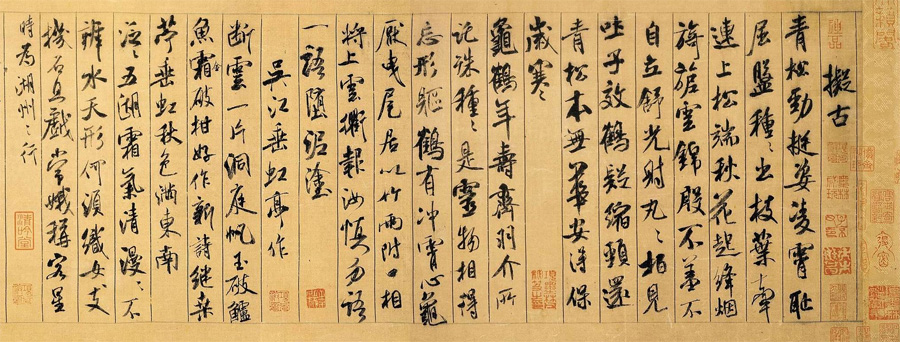 擬古
青松勁挺姿凌霄恥
屈盤種〻出枝葉牽
連上松端秋花起絳烟
旖旎雲錦殷不羞不
自立舒光射丸〻柏見
吐子效鶴疑縮頸還
青松本無華安得保
歲寒
龜鶴年壽齊羽介所
託殊種〻是靈物相得
忘形軀鶴有冲霄心龜
厭曳尾居以竹兩附口相
將上雲衢報汝慎勿語
一語墮泥塗
吳江垂虹亭作
断雲一片洞庭帆玉破鱸
魚霜金破柑好作新詩継桑
苧垂虹秋色滿東南
泛〻五湖霜氣清漫〻不
辨水天形何須織女支
機石且戲常娥稱客星
時為湖州之行